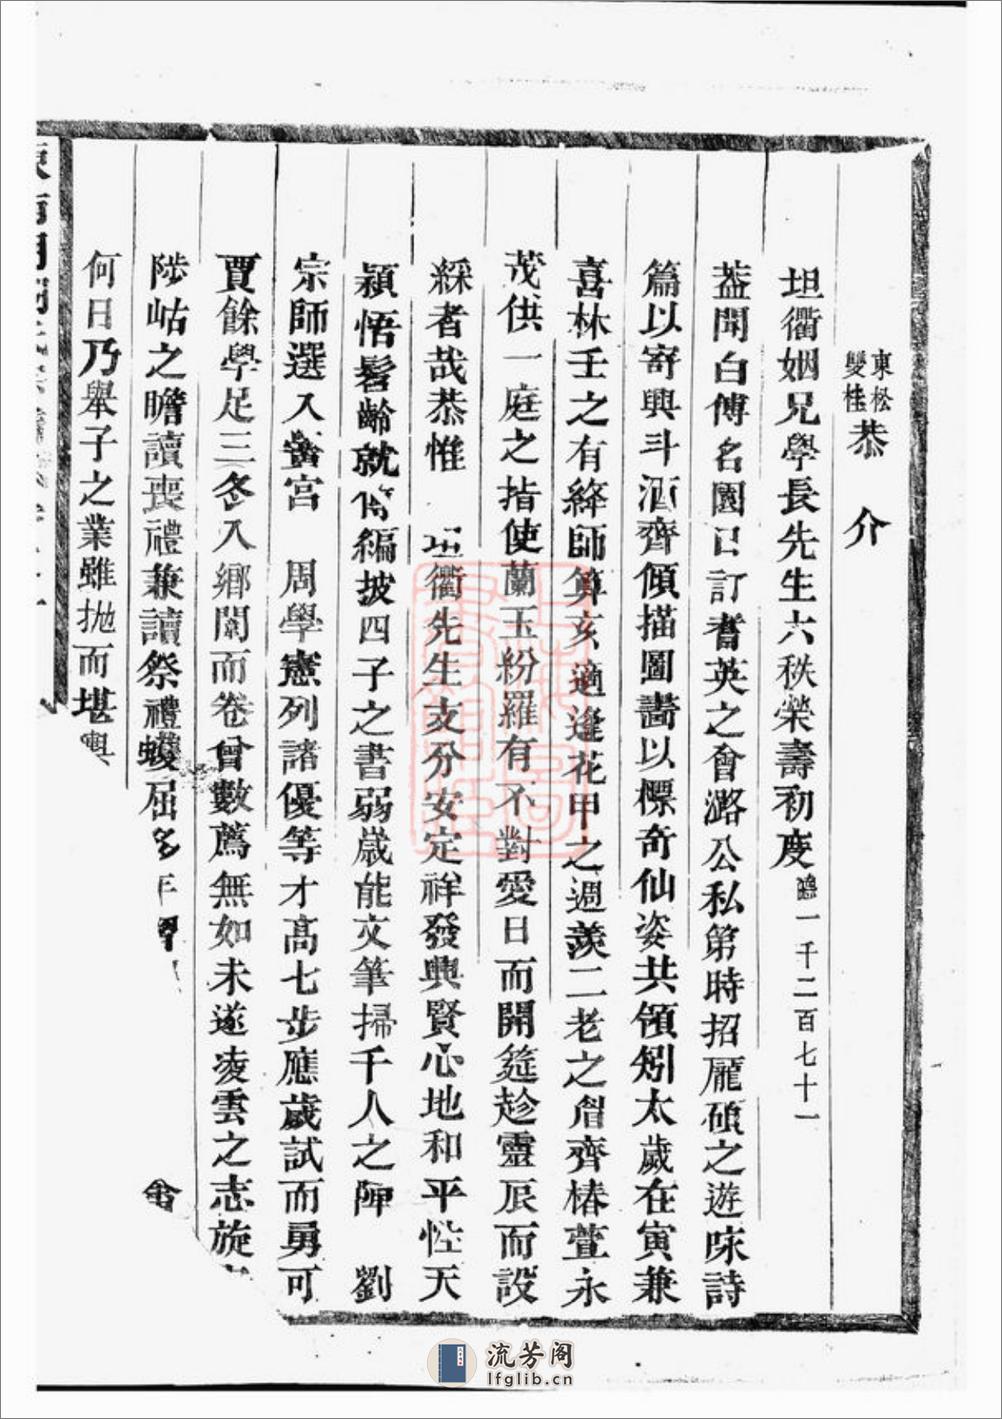 東松
雙桂
恭介
坦衢姻兄學長先生六秩榮壽初度
一千二百七十一
葢聞白傅名園已訂耆英之會潞公私第時招龎碩之遊咏詩
篇以寄興斗酒齊傾描圖畵以標奇仙姿共領矧太歲在寅兼
喜林壬之有絳師算亥適逢花甲之週羨二老之眉齊椿萱永
茂供一庭之指使蘭玉紛羅有不對愛日而開筵趁靈辰而設
綵者哉恭惟 坦衢先生支分安定祥發興賢心地和平性天
穎悟髫齡就傅編披四子之書弱歲能文筆掃千人之陣 劉
宗師選入黌宮 周學憲列諸優等才高七步應歲試而勇可
賈餘學足三冬入鄉闈而卷曾數薦無如未遂凌雲之志旋
陟岵之瞻讀喪禮兼讀祭禮蠖屈多年
何日乃舉子之業雖抛而堪輿
流芳阁
lfglib.cn